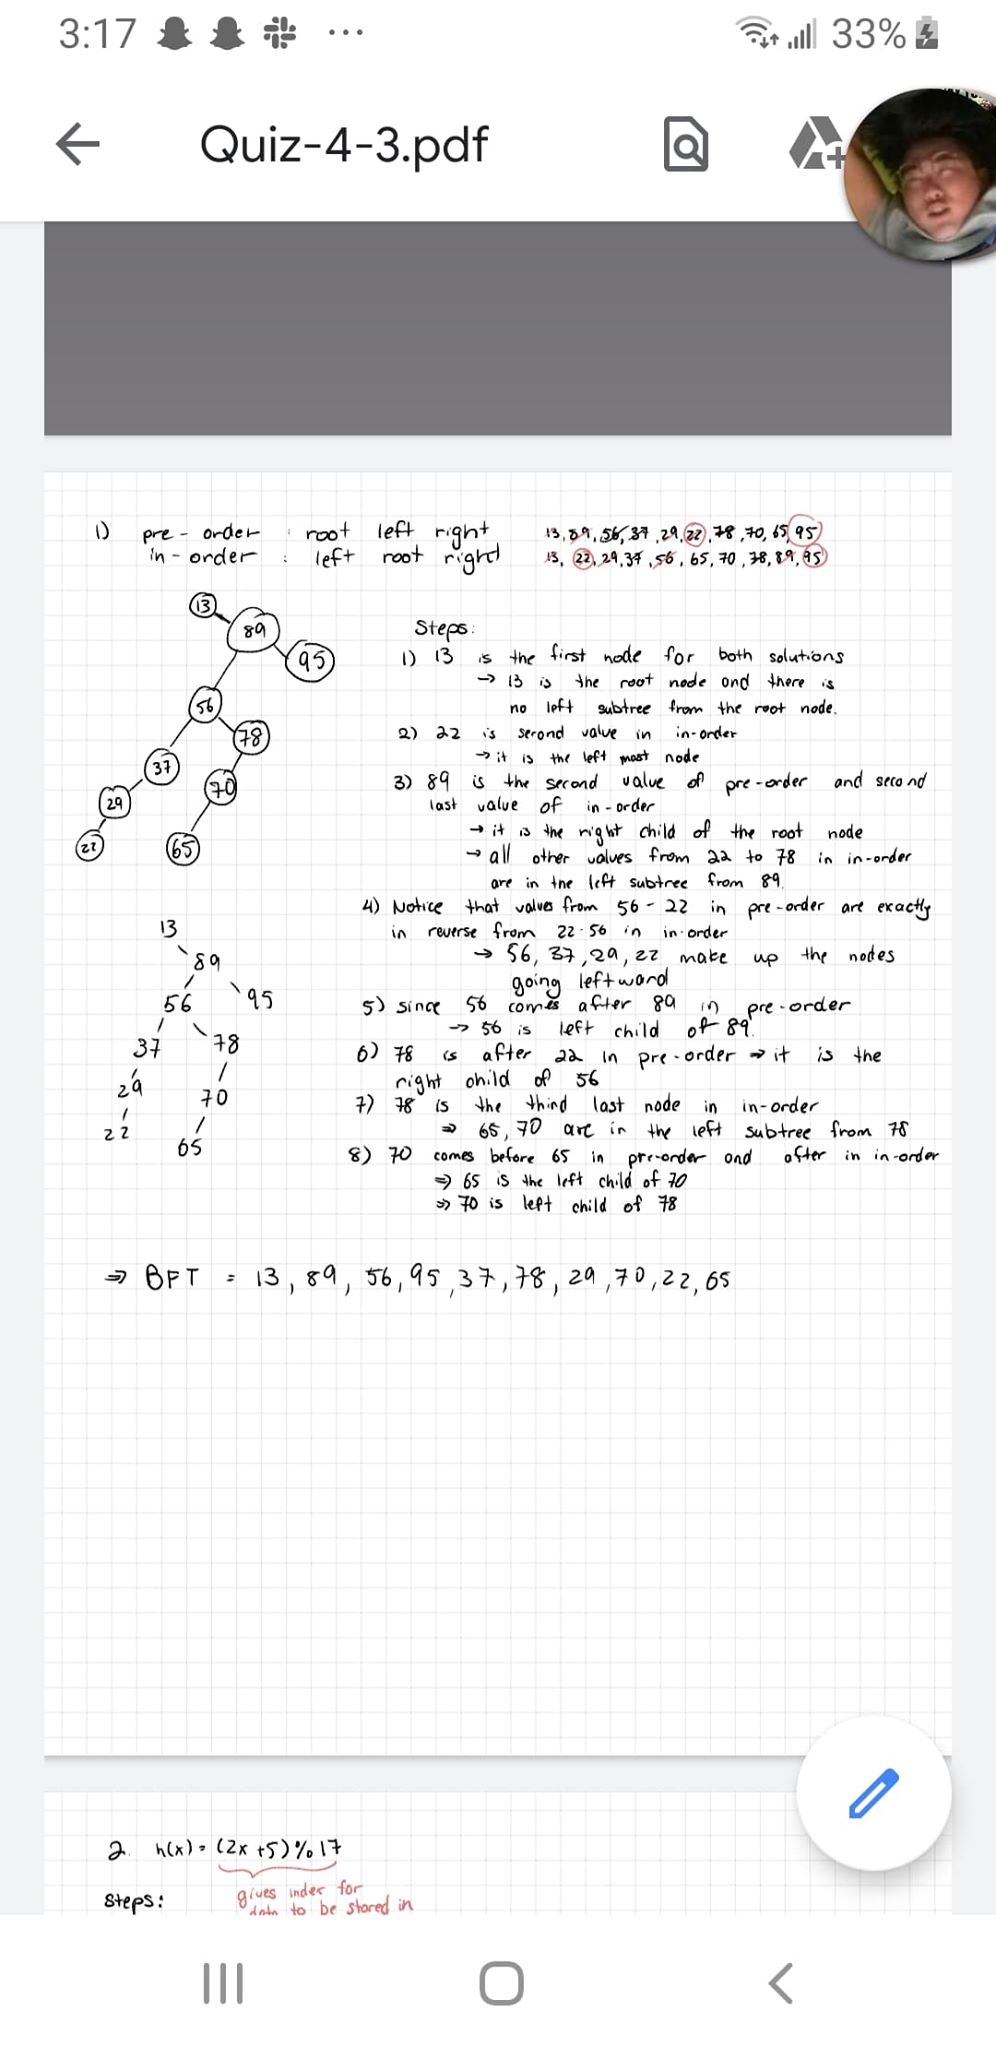 3:17 ... 33%
Quiz-4-3.pdf
1) pre - order : root left right 13, 89, 56, 37, 29, 22, 78, 70, 65, 95
in - order : left root right 13, 22, 29, 37, 56, 65, 70, 78, 89, 95
13
89
95
56
78
37
70
29
22
65
Steps:
1) 13 is the first node for both solutions
→ 13 is the root node and there is
no left subtree from the root node.
2) 22 is second value in in-order
→ it is the left most node
3) 89 is the second value of pre-order and second
last value of in-order
→ it is the right child of the root node
→ all other values from 22 to 78 in in-order
are in the left subtree from 89.
4) Notice that values from 56 - 22 in pre-order are exactly
in reverse from 22-56 in in-order
→ 56, 37, 29, 22 make up the nodes
going leftword
5) since 56 comes after 89 in pre-order
→ 56 is left child of 89.
6) 78 is after 22 in pre-order ⇒ it is the
right child of 56
7) 78 is the third last node in in-order
⇒ 65, 70 are in the left subtree from 78
8) 70 comes before 65 in pre-order and after in in-order
⇒ 65 is the left child of 70
⇒ 70 is left child of 78
13
89
56 95
37 78
29 70
22 65
⇒ BFT = 13, 89, 56, 95, 37, 78, 29, 70, 22, 65
2. h(x) = (2x +5) % 17
steps: gives index for
data to be stored in